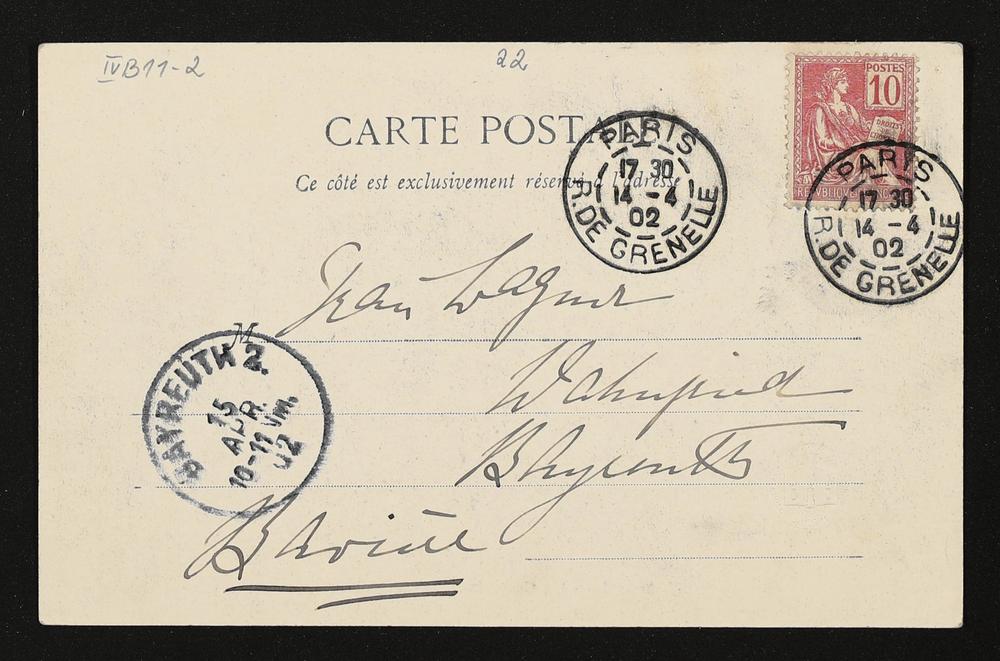 IV B 11-2
22
CARTE POSTALE
Ce côté est exclusivement réservé à l'adresse
POSTES
10
DROITS
PARIS
17 30
14 -4
02
R. DE GRENELLE
PARIS
17 30
14 -4
02
R. DE GRENELLE
M
Frau Wagner
Wahnfried
Bayreuth
Bavière
BAYREUTH 2.
15
APR.
10-11 Vm.
02